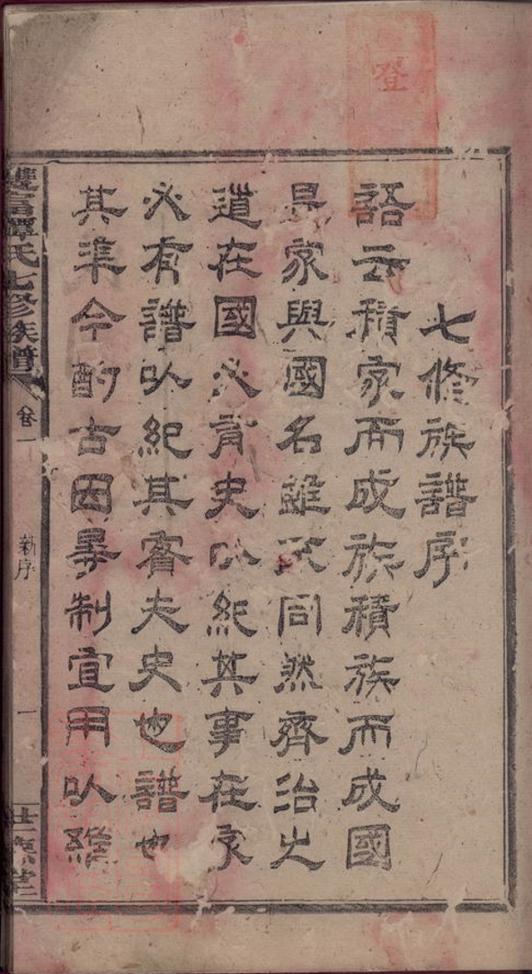 登
七修族譜序
語云積家而成族積族而成國
是家與國名雖不同然齊治之
道在國必有史以紀其事在家
必有譜以紀其實夫史也譜也
其準今酌古因時制宜用以
雙富譚氏七修族譜 卷一 新序 一 堂